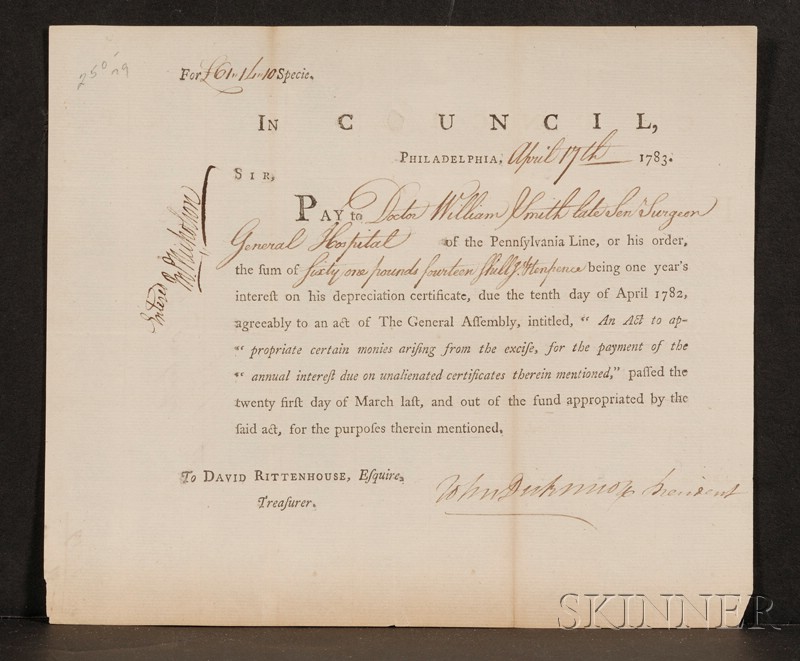 250 n9
For £61-14-10 Specie.
IN C UNCIL,
PHILADELPHIA, April 17th 1783.
SIR,
PAY to Doctor William Smith late Senr Surgeon
General Hospital of the Pennſylvania Line, or his order,
the ſum of Sixty one pounds fourteen Shillgs & tenpence being one year's
intereſt on his depreciation certificate, due the tenth day of April 1782,
agreeably to an act of The General Aſſembly, intitled, “ An Act to ap-
“ propriate certain monies ariſing from the exciſe, for the payment of the
“ annual intereſt due on unalienated certificates therein mentioned,” paſſed the
twenty firſt day of March laſt, and out of the fund appropriated by the
ſaid act, for the purpoſes therein mentioned.
To DAVID RITTENHOUSE, Eſquire,
Treaſurer.
John Dickinson President
Entered Jn Nicholson
SKINNER